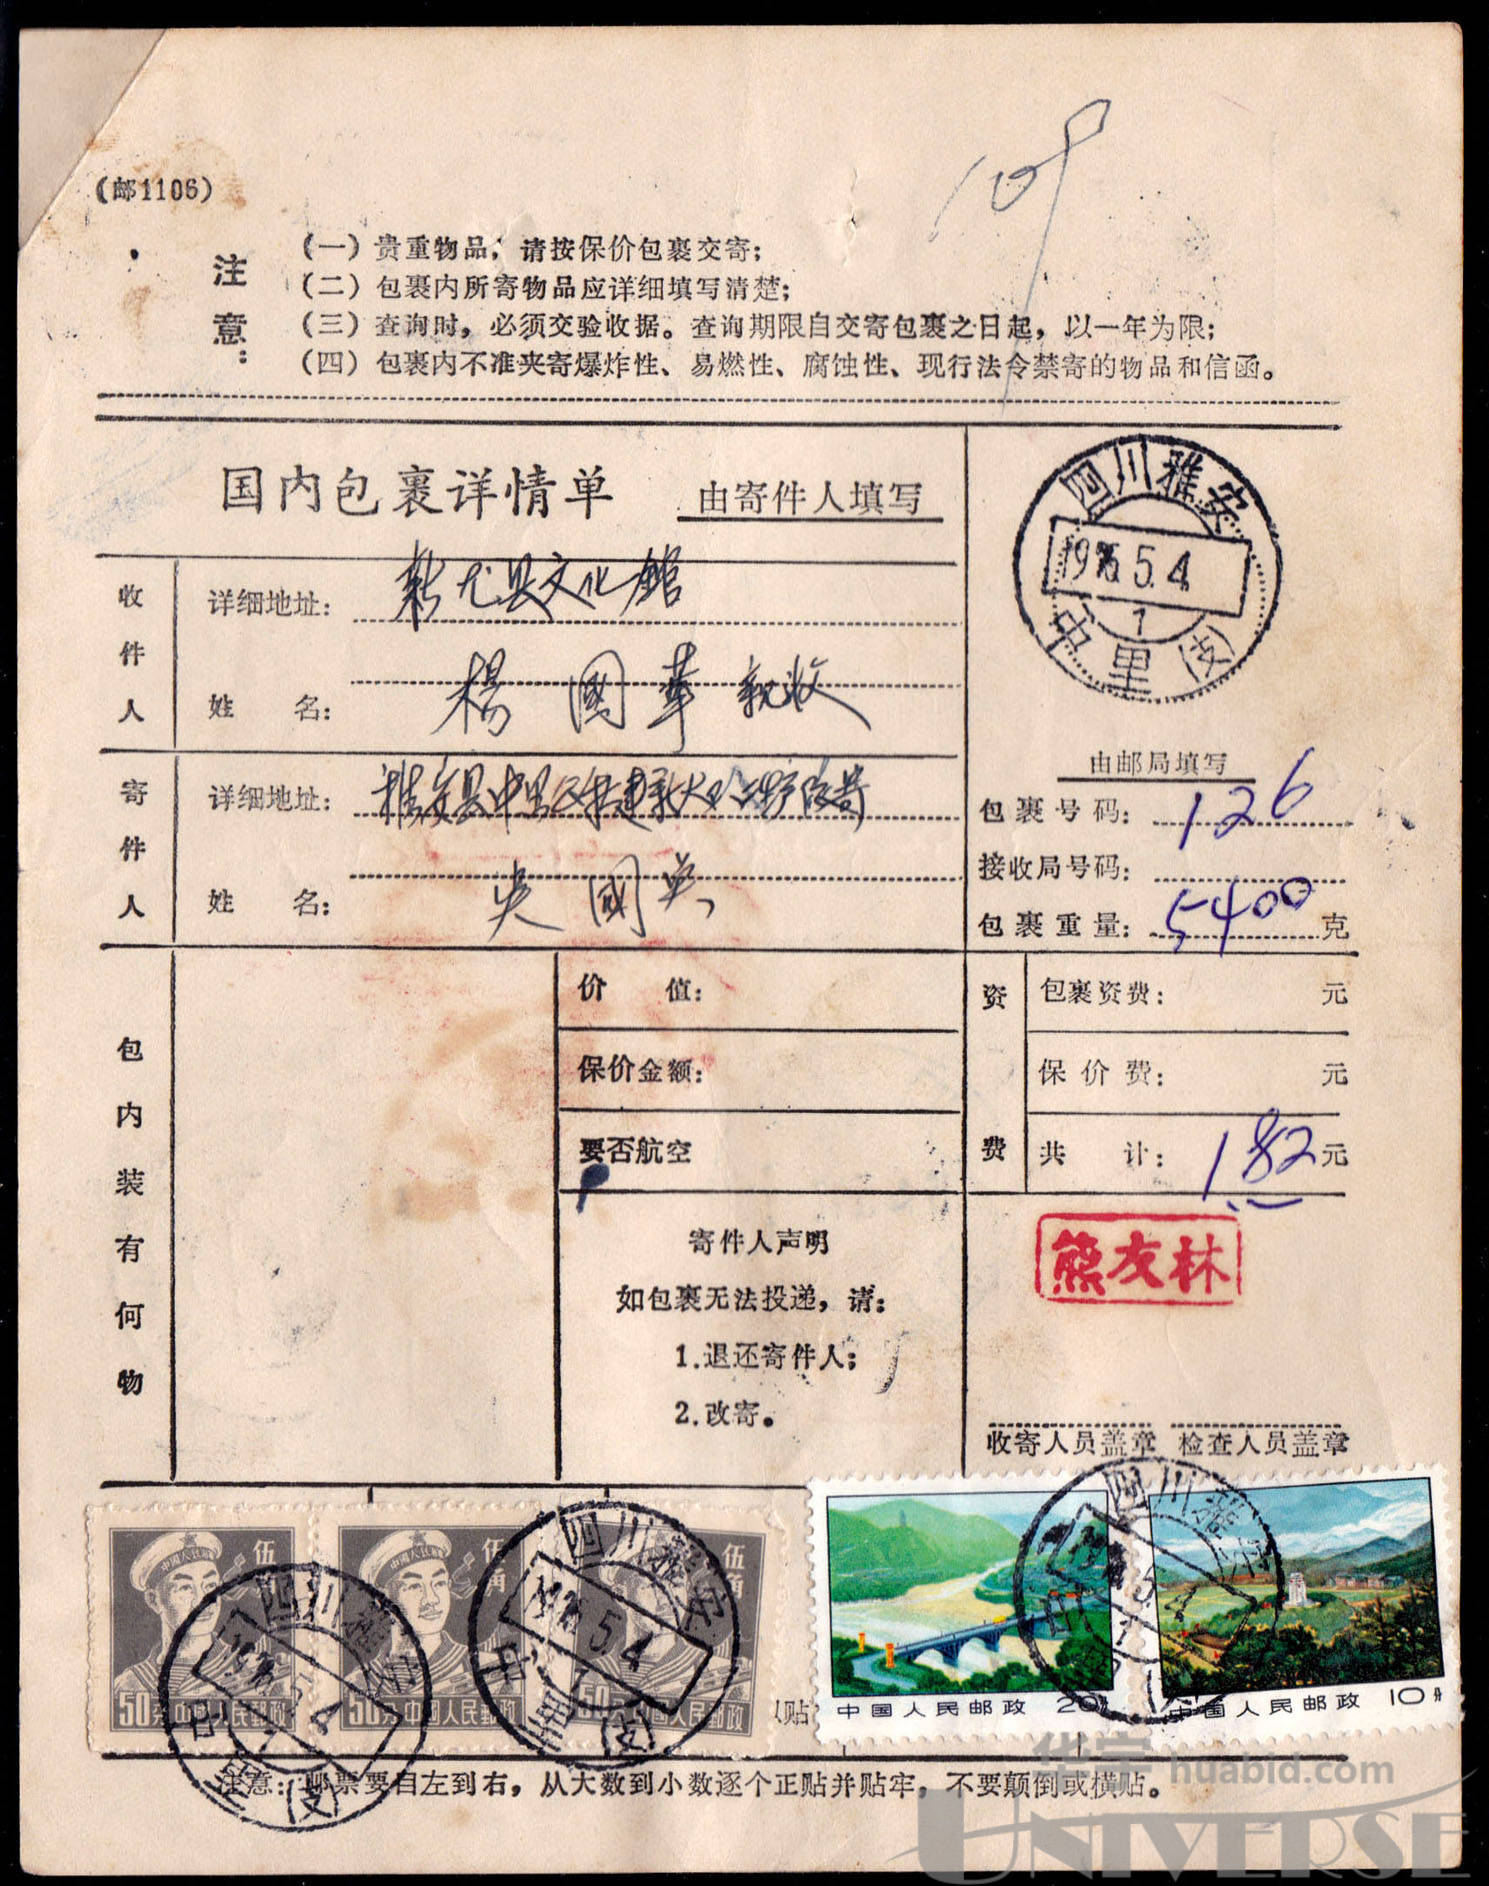 109
(邮1106)
注意：
(一) 贵重物品，请按保价包裹交寄；
(二) 包裹内所寄物品应详细填写清楚；
(三) 查询时，必须交验收据。查询期限自交寄包裹之日起，以一年为限；
(四) 包裹内不准夹寄爆炸性、易燃性、腐蚀性、现行法令禁寄的物品和信函。
国内包裹详情单 由寄件人填写
四川雅安
1976.5.4
1
中里(支)
收件人
详细地址： 新尤县文化館
姓 名： 楊國華 親收
寄件人
详细地址： 雅安县中里公社建新大队
姓 名： 吴國英
由邮局填写
包裹号码： 126
接收局号码：
包裹重量： 5400 克
包内装有何物
价 值：
保价金额：
要否航空
资费
包裹资费： 元
保价费： 元
共 计： 182 元
寄件人声明
如包裹无法投递，请：
1.退还寄件人；
2.改寄。
熊友林
收寄人员盖章 检查人员盖章
伍角 伍角 伍角
50分 中国人民郵政 50分 中国人民郵政 50分 中国人民郵政
四川雅安 1976.5.4 中里(支)
四川雅安 1976.5.4 中里(支)
四川雅安
以贴
中国人民邮政 20分 中国人民邮政 10分
注意：邮票要自左到右，从大数到小数逐个正贴并贴牢，不要颠倒或横贴。
华宇 huabid.com
UNIVERSE